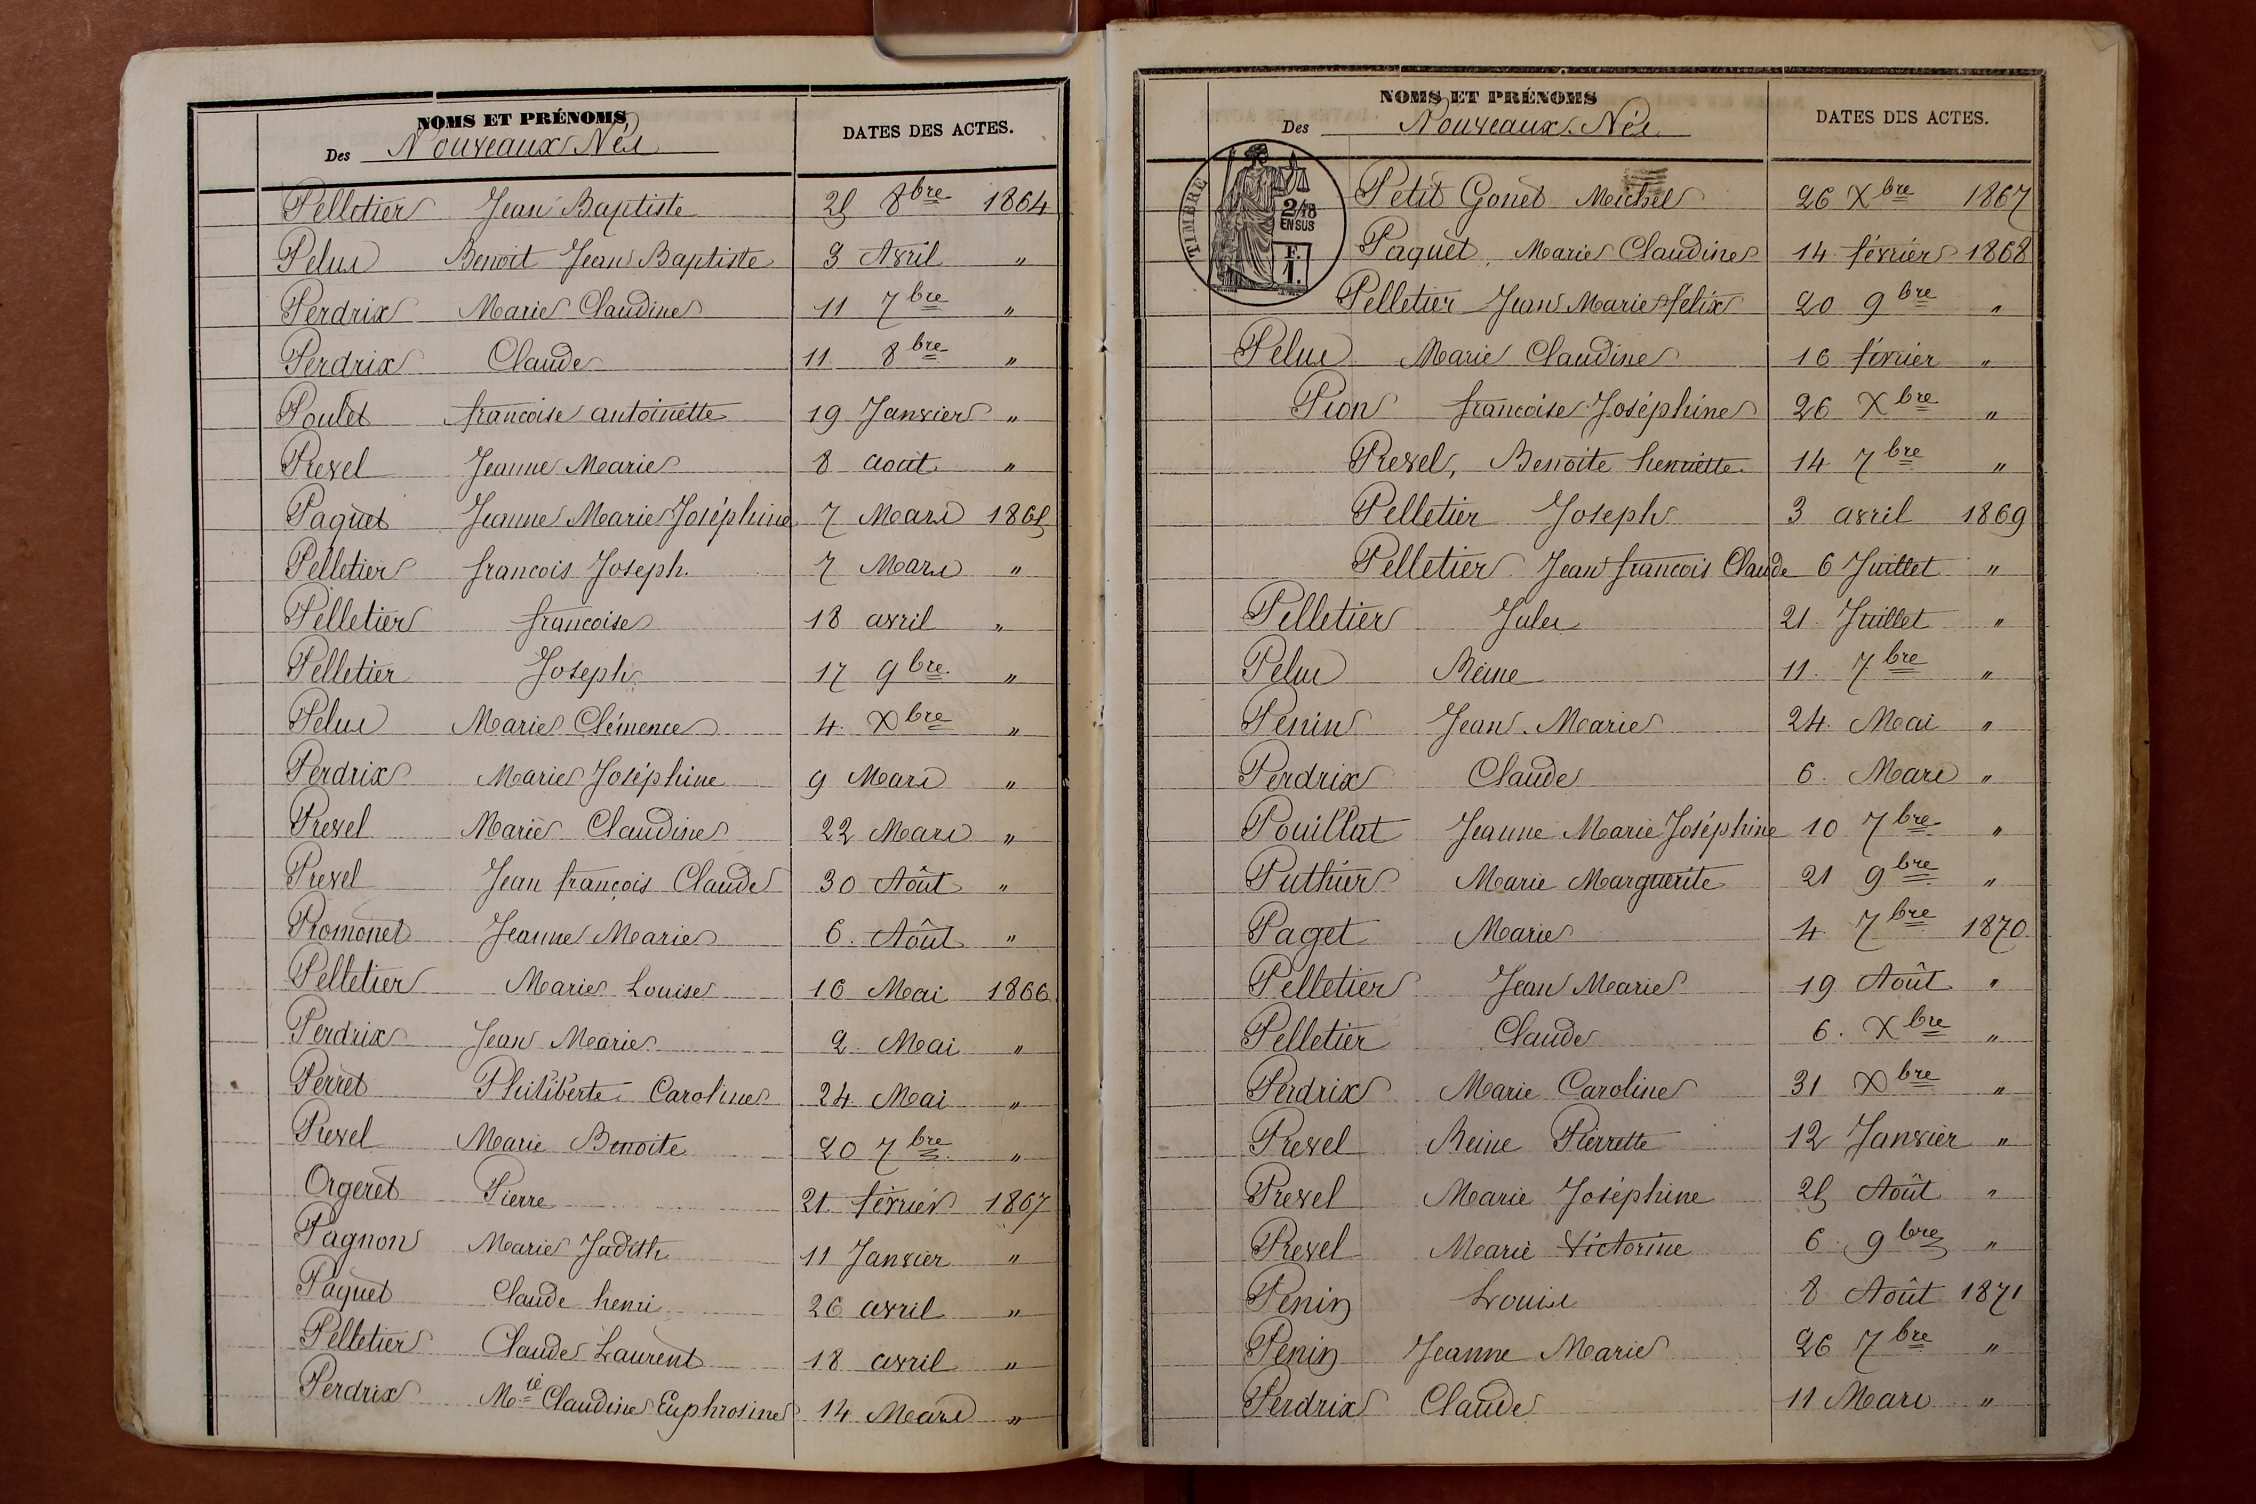 NOMS ET PRÉNOMS
Des Nouveaux Nés
DATES DES ACTES.
Pelletier Jean Baptiste 25 8bre 1864
Pelus Benoit Jean Baptiste 3 Avril "
Perdrix Marie Claudine 11 7bre "
Perdrix Claude 11 8bre "
Poulet francoise antoinette 19 Janvier "
Prevel Jeanne Marie 8 aout "
Paquet Jeanne Marie Joséphine 7 Mars 1865
Pelletier francois Joseph. 7 Mars "
Pelletier francoise 18 avril "
Pelletier Joseph 17 9bre "
Pelus Marie Clémence 4 Xbre "
Perdrix Marie Joséphine 9 Mars "
Prevel Marie Claudine 22 Mars "
Prevel Jean françois Claude 30 Août "
Promonet Jeanne Marie 6. Août "
Pelletier Marie Louise 16 Mai 1866
Perdrix Jean Marie 2 Mai "
Perret Philiberte Caroline 24 Mai "
Prevel Marie Benoite 20 7bre "
Orgeret Pierre 21 février 1867
Pagnon Marie Judith 11 Janvier "
Paquet Claude henri 26 avril "
Pelletier Claude Laurent 18 avril "
Perdrix Mie Claudine Euphrosine 14 Mars "
NOMS ET PRÉNOMS
Des Nouveaux Nés
DATES DES ACTES.
TIMBRE
2/10
EN SUS
F.
1.
Petit Gonet Michel 26 Xbre 1867
Paquet, Marie Claudine 14 février 1868
Pelletier Jean Marie félix 20 9bre "
Pelus Marie Claudine 16 février "
Pion francoise Joséphine 26 Xbre "
Prevel, Benoite henriette 14 7bre "
Pelletier Joseph 3 avril 1869
Pelletier Jean francois Claude 6 Juillet "
Pelletier Jules 21 Juillet "
Pelus Reine 11. 7bre "
Penin Jean Marie 24. Mai "
Perdrix Claude 6. Mars "
Pouillat Jeanne Marie Joséphine 10 7bre "
Puthier Marie Marguerite 21 9bre "
Paget Marie 4 7bre 1870
Pelletier Jean Marie 19 Août "
Pelletier Claude 6. Xbre "
Perdrix Marie Caroline 31 Xbre "
Prevel Reine Pierrette 12 Janvier "
Prevel Marie Joséphine 25 Août "
Prevel Marie Victorine 6 9bre "
Penin Louis 8 Août 1871
Penin Jeanne Marie 26 7bre "
Perdrix Claude 11 Mars "